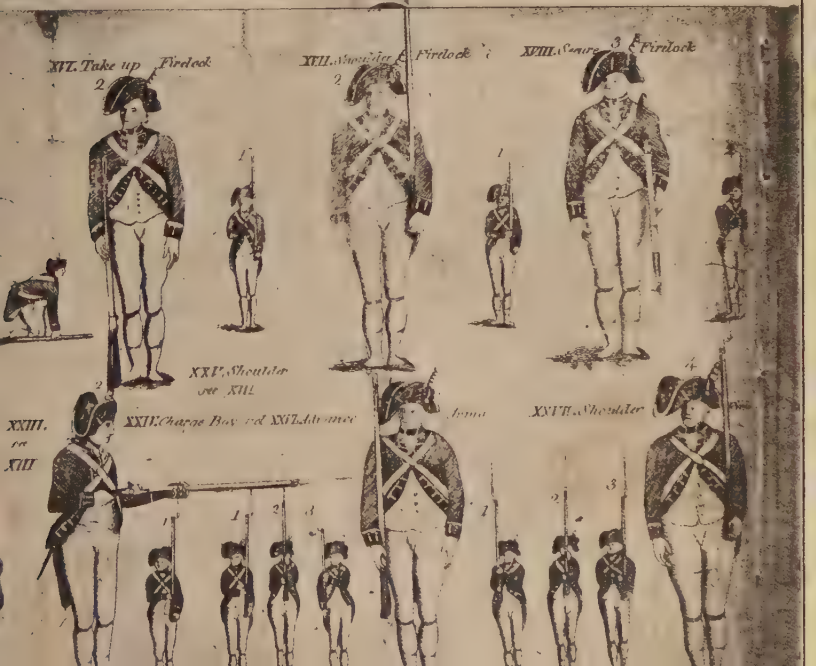 XVI. Take up Firelock
2
XVII. Shoulder Firelock
2
XVIII. Secure Firelock
3
1
1
XXV. Shoulder
see XIII
2
XXIII.
see
XIII
XXIV. Charge Bay.
XXVI. Advance Arms
XXVII. Shoulder
4
1
1
2
3
1
2
3